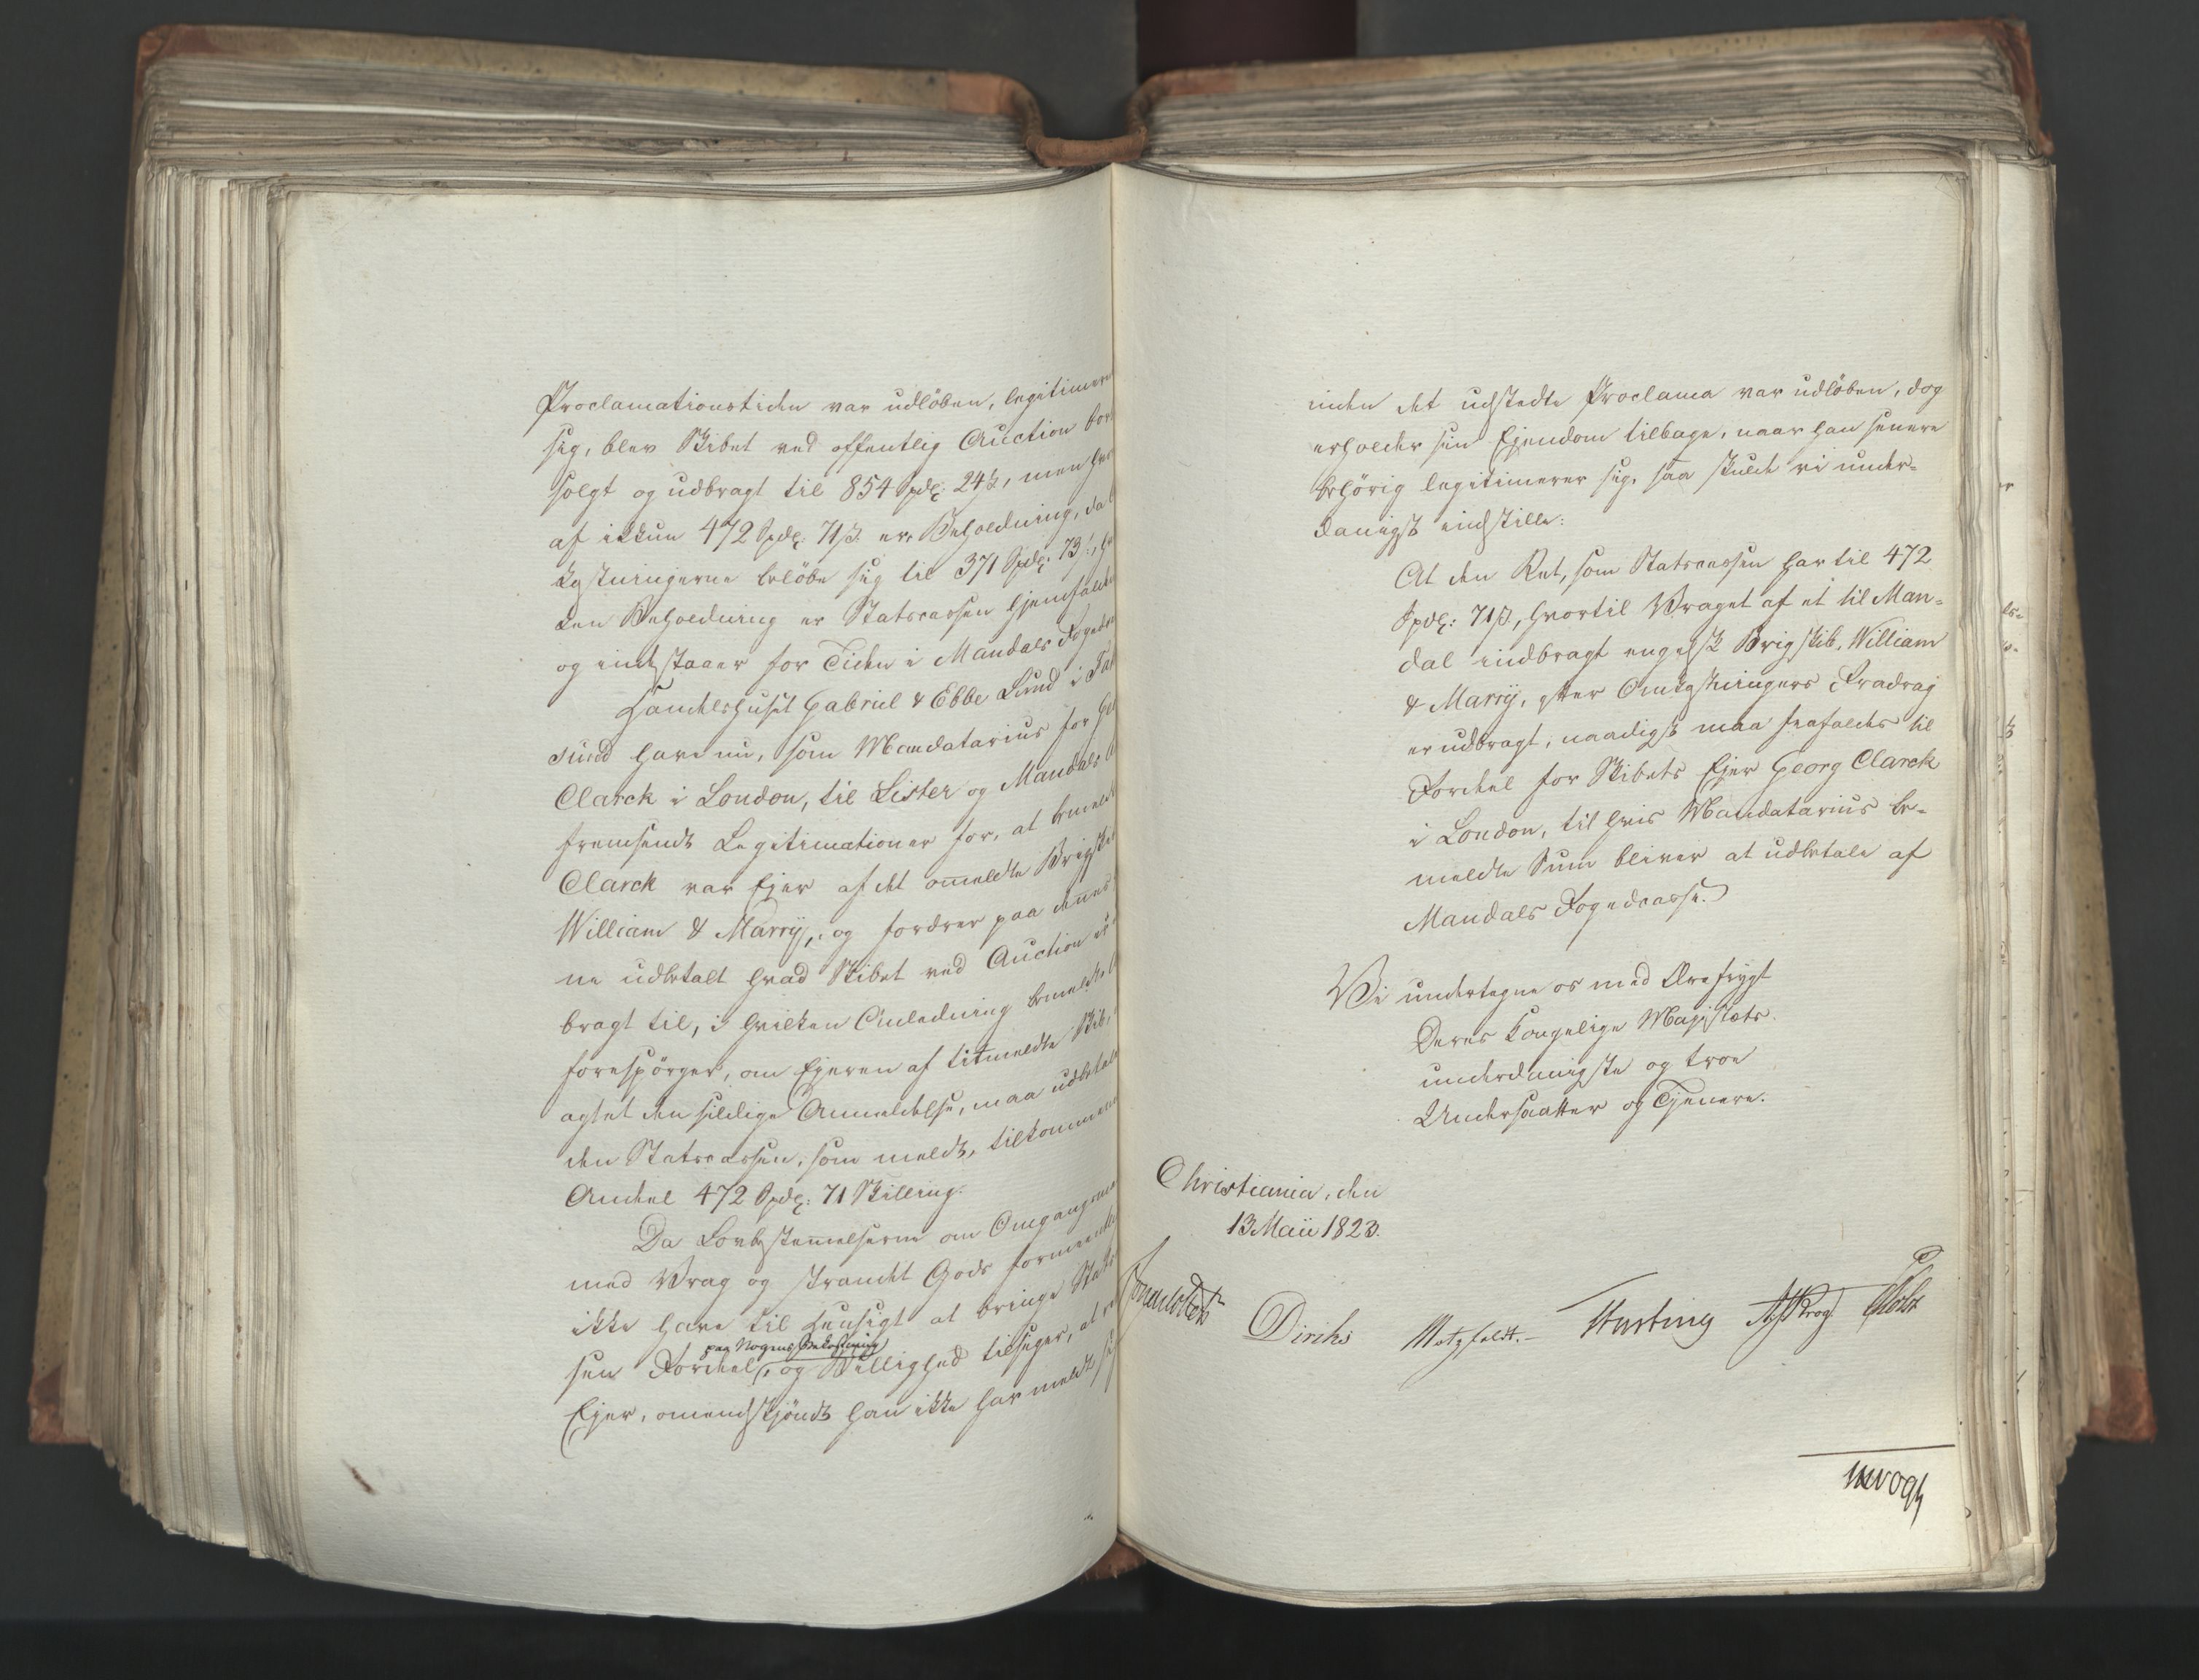 Proclamationstiden var udlöben, legitimere
sig, blev Skibet ved offentlig Auction bort
solgt og udbragt til 854 Spdl: 24ß, men
af ikkun 472 Spdl: 71ß er Beholdning, da
kostningerne belöbe sig til 371 Spdl: 73ß,
ken Beholdning er Statscassen hjemfalden
og indestaaer for Tiden i Mandals Fogederi
Handelshuset Gabriel & Ebbe Lund i Far
sund have nu, som Mandatarius for
Clarck i London, til Lister og Mandals
fremsendt Legitimationer for, at bemeldte
Clarck var Ejer af det ommeldte Brigskib
William & Marrÿ, og fordrer paa dennes
ne udbetalt hvad Skibet ved Auction er
bragt til, i hvilken Anledning bemeldte
forespörger, om Ejeren af titmeldte Skib,
agtet den sildige Anmeldelse, maa udbetales
den Statscassen, som meldt, tilkommende
Andeel 472 Spdl: 71 Skilling.
Da Lovbestemmelserne om Omgangsmaaden
med Vrag og strandet Gods formeentlig
ikke have til Hensigt at bringe Stats
paa Nogens Bekostning
sen Fordeel, og Billighed tilsiger, at
Ejer, omendskjöndt han ikke har meldt sig
inden det udstedte Proclama var udlöben, dog
erholder sin Ejendom tilbage, naar han senere
behörig legitimerer sig, saa skulde vi under-
danigst indstille:
At den Ret, som Statscassen har til 472
Spdl: 71ß, hvortil Vraget af et til Man-
dal indbragt engelsk Brigskib, William
& Marrÿ, efter Omkostningers Fradrag
er udbragt, naadigst maa frafaldes til
Fordeel for Skibets Ejer Georg Clarck
i London, til hvis Mandatarius be-
meldte Sum bliver at udbetale af
Mandals Fogedcasse.
Vi undertegne os med Ærefrygt
Deres Kongelige Majestæts
underdanigste og troe
Undersaatter og Tjenere.
Christiania, den
13 Maii 1823.
Sommerfeldt
Diriks Motzfeldt.- Hasting Krog Holst